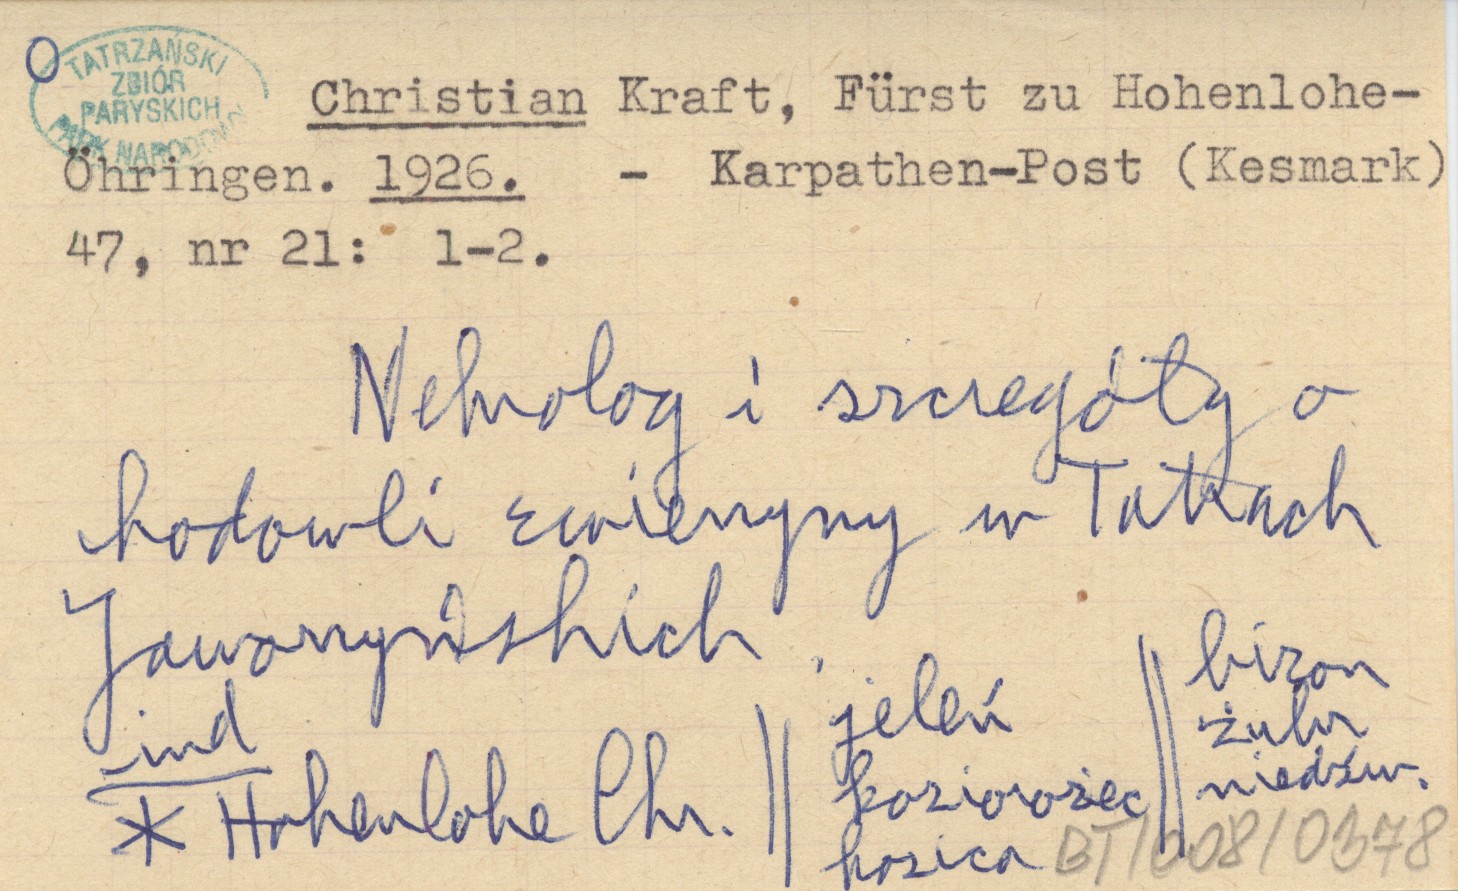 TATRZAŃSKI
ZBIÓR
PARYSKICH
PARK NARODOWY
Christian Kraft, Fürst zu Hohenlohe-
Öhringen. 1926. - Karpathen-Post (Kesmark)
47, nr 21: 1-2.
Nekrolog i szczegóły o
hodowli zwierzyny w Tatrach
Jaworzyńskich.
ind
* Hohenlohe Chr. ||
jeleń
koziorożec
kozica
||
bizon
żubr
niedźw.
BT/008/0378